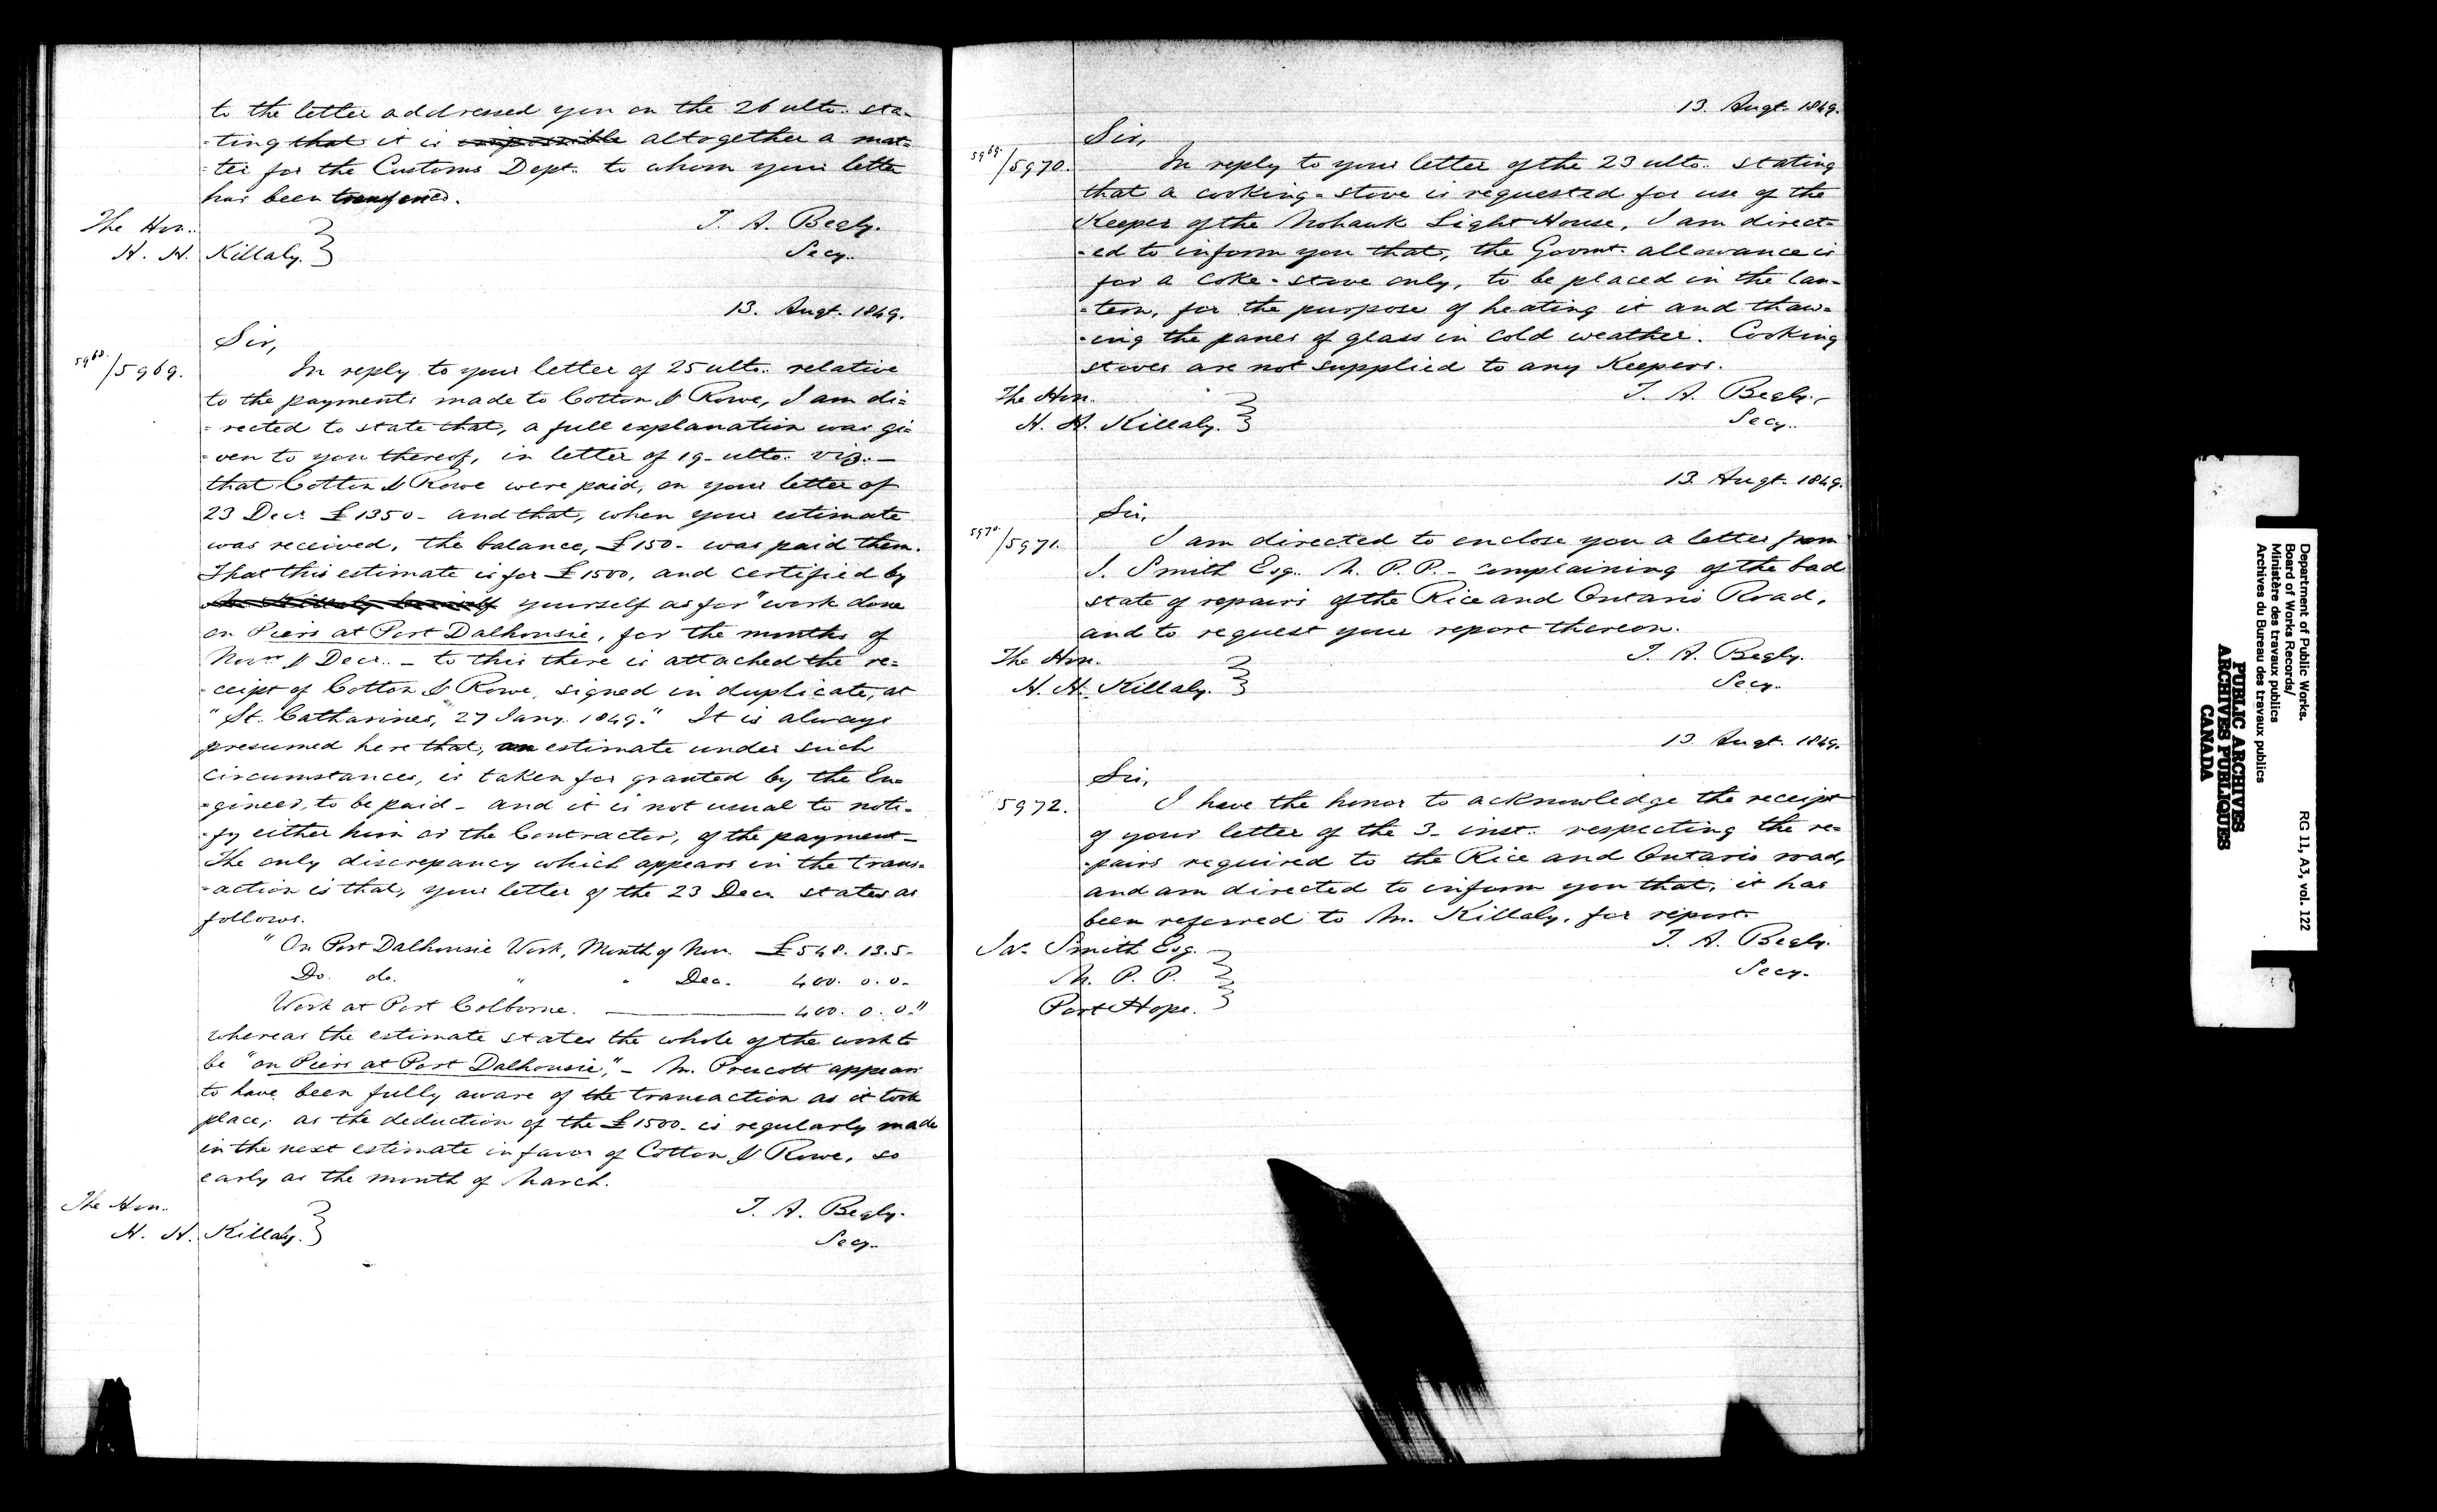 to the letter addressed you on the 26 ulto. sta-
-ting that it is impossible altogether a mat-
-ter for the Customs Dept. to whom your letter
has been transferred.
The Hon.
H. H. Killaly.
T. A. Begly.
Secy.
13. Augt. 1849.
Sir,
5968./5969.
In reply to your letter of 25 ulto. relative
to the payments made to Cotton & Rowe, I am di-
-rected to state that, a full explanation was gi-
-ven to you thereof, in letter of 19- ulto. viz.-
that Cotton & Rowe were paid, on your letter of
23 Decr. £1350- and that, when your estimate
was received, the balance, £150- was paid them.
That this estimate is for £1500, and certified by
Mr. Killaly himself yourself as for "work done
on Piers at Port Dalhousie, for the months of
Novr. & Decr. - to this there is attached the re-
-ceipt of Cotton & Rowe, signed in duplicate, at
"St. Catharines, 27 Jany. 1849." It is always
presumed here that, an estimate under such
circumstances, is taken for granted by the En-
-gineer, to be paid - and it is not usual to noti-
-fy either him or the Contractor, of the payment-
The only discrepancy which appears in the trans-
-action is that, your letter of the 23 Decr. states as
follows.
"On Port Dalhousie Work, Month of Nov. £548. 13. 5-
Do. do. " " Dec. 400. 0. 0-
Work at Port Colborne. 400. 0. 0."
whereas the estimate states the whole of the work to
be "on Piers at Port Dalhousie", - Mr. Prescott appears
to have been fully aware of the transaction as it took
place, as the deduction of the £1500- is regularly made
in the next estimate in favor of Cotton & Rowe, so
early as the month of March.
The Hon.
H. H. Killaly.
T. A. Begly.
Secy.
13. Augt. 1849.
Sir,
5969./5970.
In reply to your letter of the 23 ulto. stating
that a cooking-stove is requested for use of the
Keeper of the Mohawk Light House, I am direct-
-ed to inform you that, the Govmt. allowance is
for a coke-stove only, to be placed in the lan-
-tern, for the purpose of heating it and thaw-
-ing the panes of glass in cold weather. Cooking
stoves are not supplied to any Keepers.
The Hon.
H. H. Killaly.
T. A. Begly.
Secy.
13. Augt. 1849.
Sir,
5970./5971.
I am directed to enclose you a letter from
J. Smith Esq. M. P. P. - complaining of the bad
state of repairs of the Rice and Ontario Road,
and to request your report thereon.
The Hon.
H. H. Killaly.
T. A. Begly.
Secy.
13. Augt. 1849.
Sir,
5972.
I have the honor to acknowledge the receipt
of your letter of the 3- inst. respecting the re-
-pairs required to the Rice and Ontario road,
and am directed to inform you that, it has
been referred to Mr. Killaly, for report.
Jas. Smith Esq.
M. P. P.
Port Hope.
T. A. Begly.
Secy.
Department of Public Works.
Board of Works Records/
Ministère des travaux publics
Archives du Bureau des travaux publics
RG 11, A3, vol. 122
PUBLIC ARCHIVES
ARCHIVES PUBLIQUES
CANADA